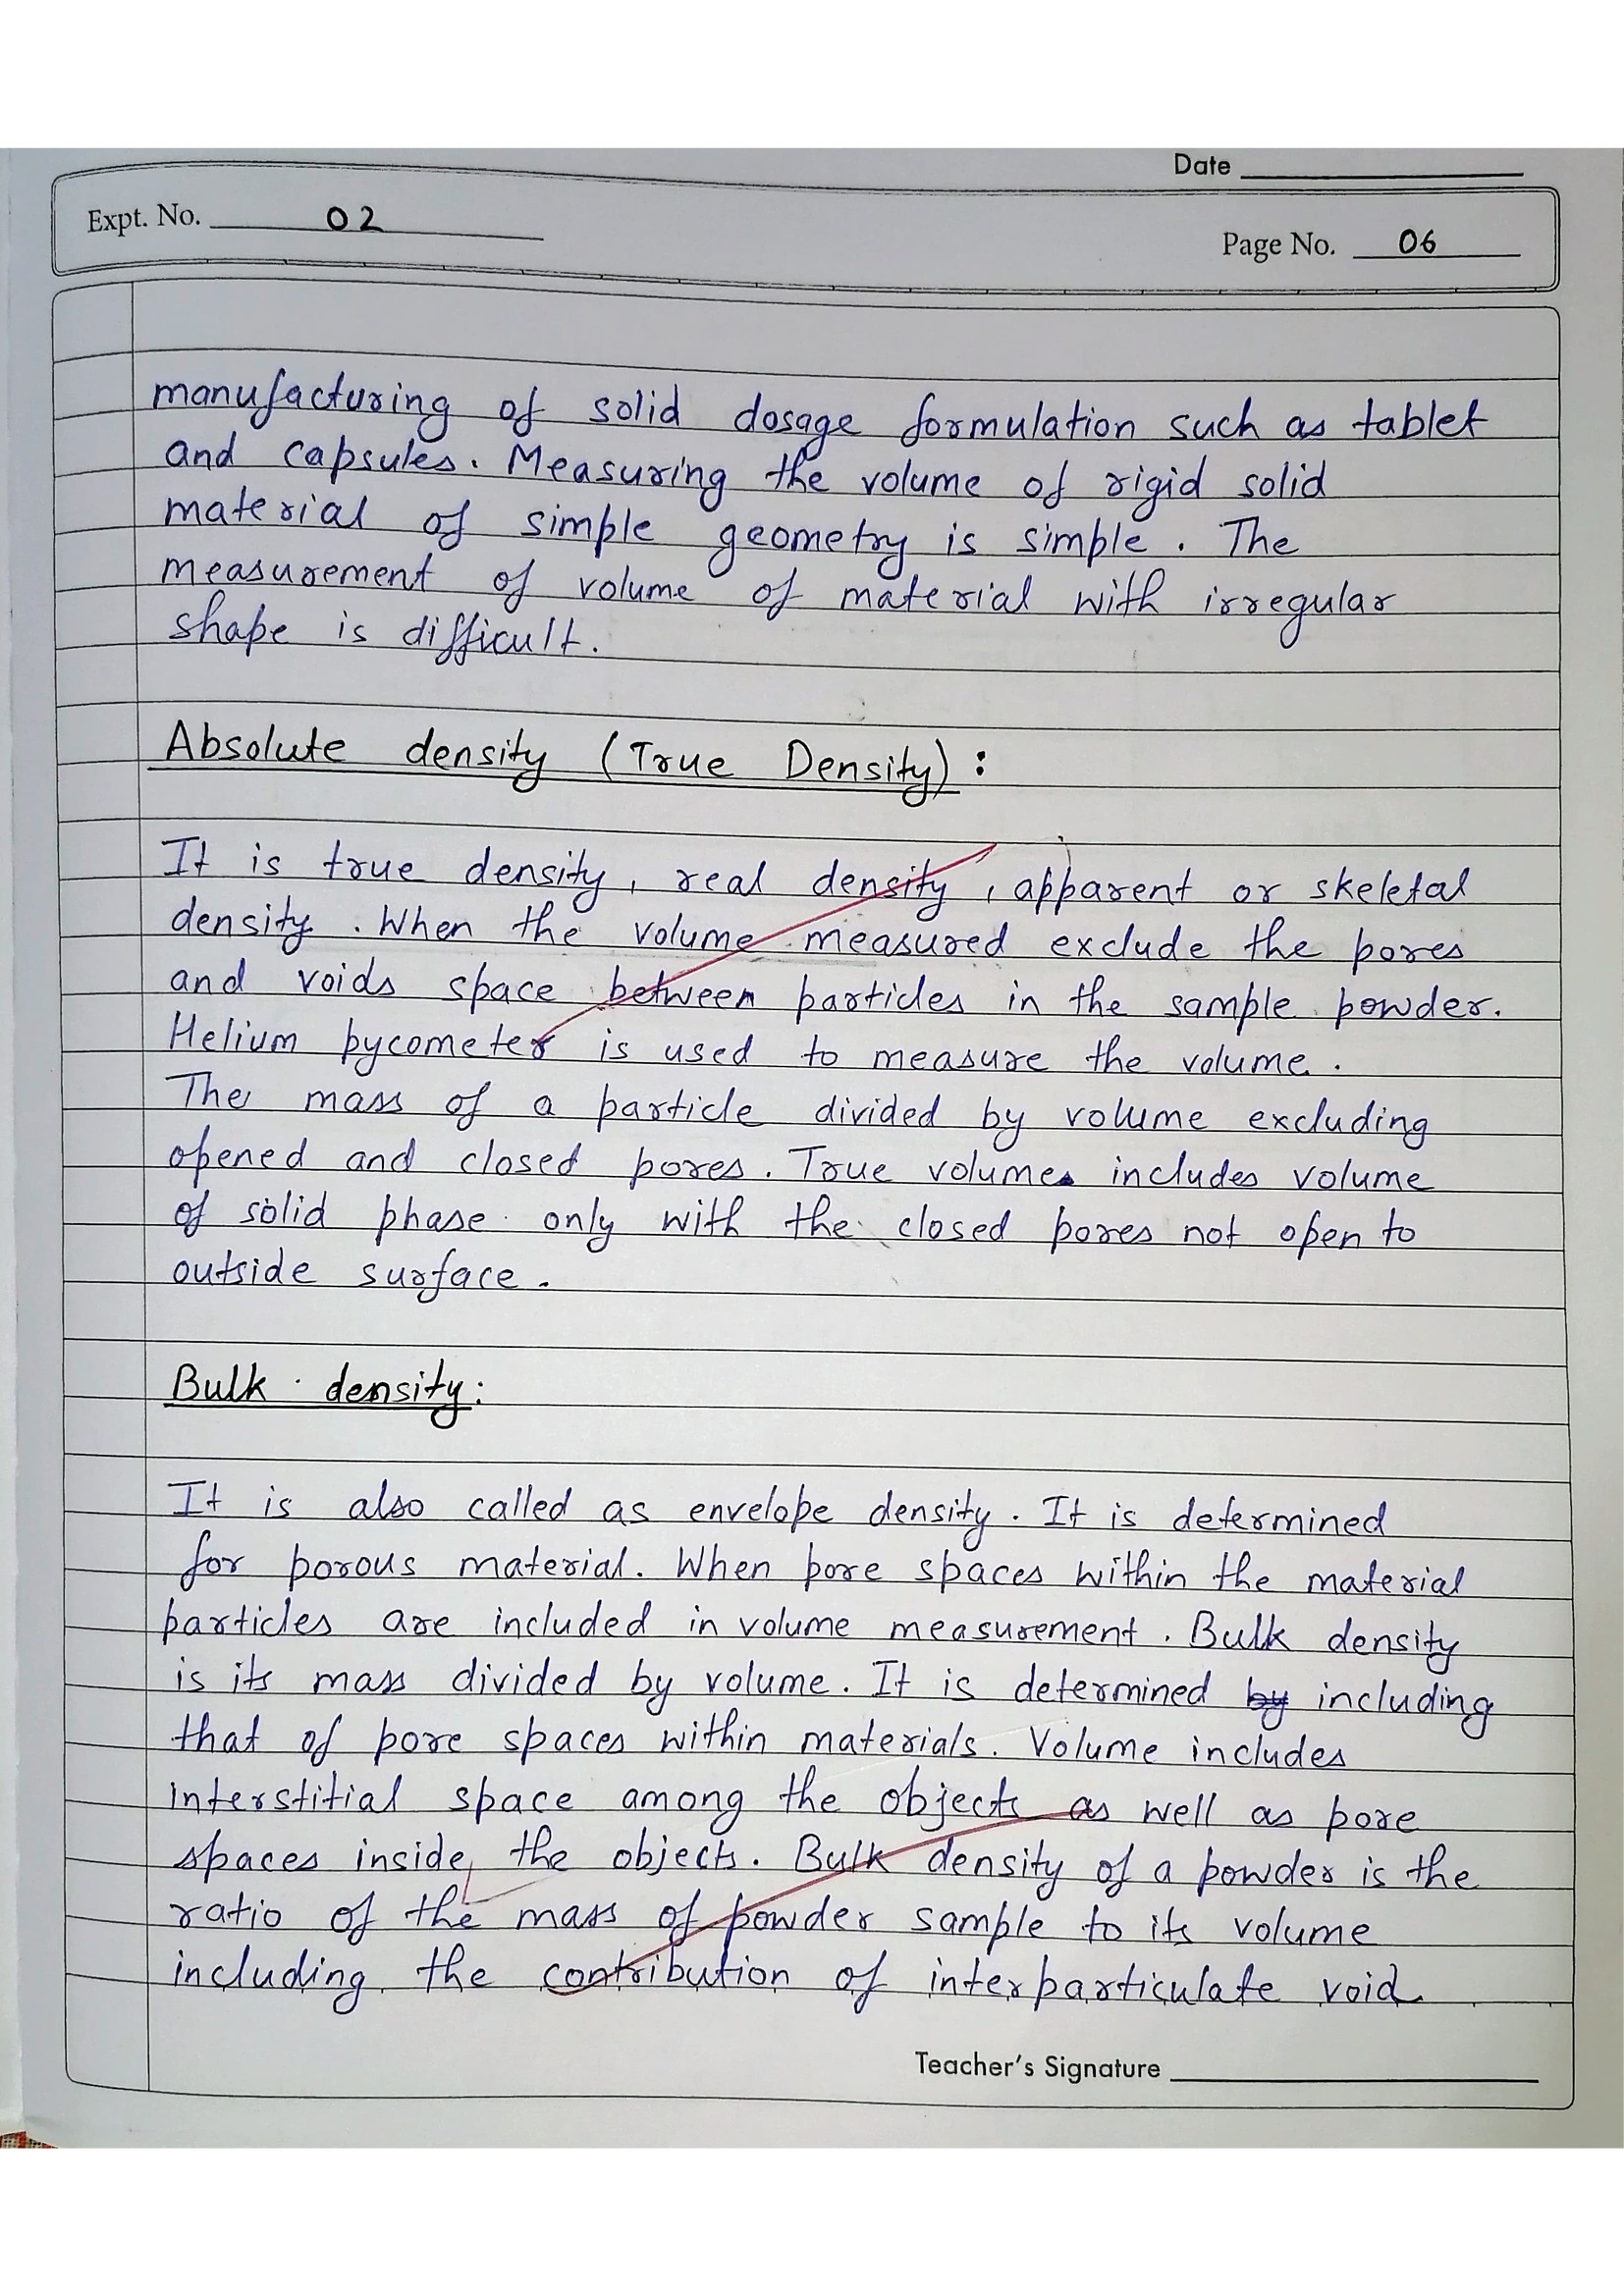 Date
Expt. No. 02
Page No. 06
manufacturing of solid dosage formulation such as tablet
and capsules. Measuring the volume of rigid solid
material of simple geometry is simple. The
measurement of volume of material with irregular
shape is difficult.
Absolute density (True Density) :
It is true density, real density, apparent or skeletal
density. When the volume measured exclude the pores
and voids space between particles in the sample powder.
Helium pycometer is used to measure the volume.
The mass of a particle divided by volume excluding
opened and closed pores. True volumes includes volume
of solid phase only with the closed pores not open to
outside surface.
Bulk density:
It is also called as envelope density. It is determined
for porous material. When pore spaces within the material
particles are included in volume measurement. Bulk density
is its mass divided by volume. It is determined by including
that of pore spaces within materials. Volume includes
interstitial space among the objects as well as pore
spaces inside the objects. Bulk density of a powder is the
ratio of the mass of powder sample to its volume
including the contribution of interparticulate void
Teacher's Signature